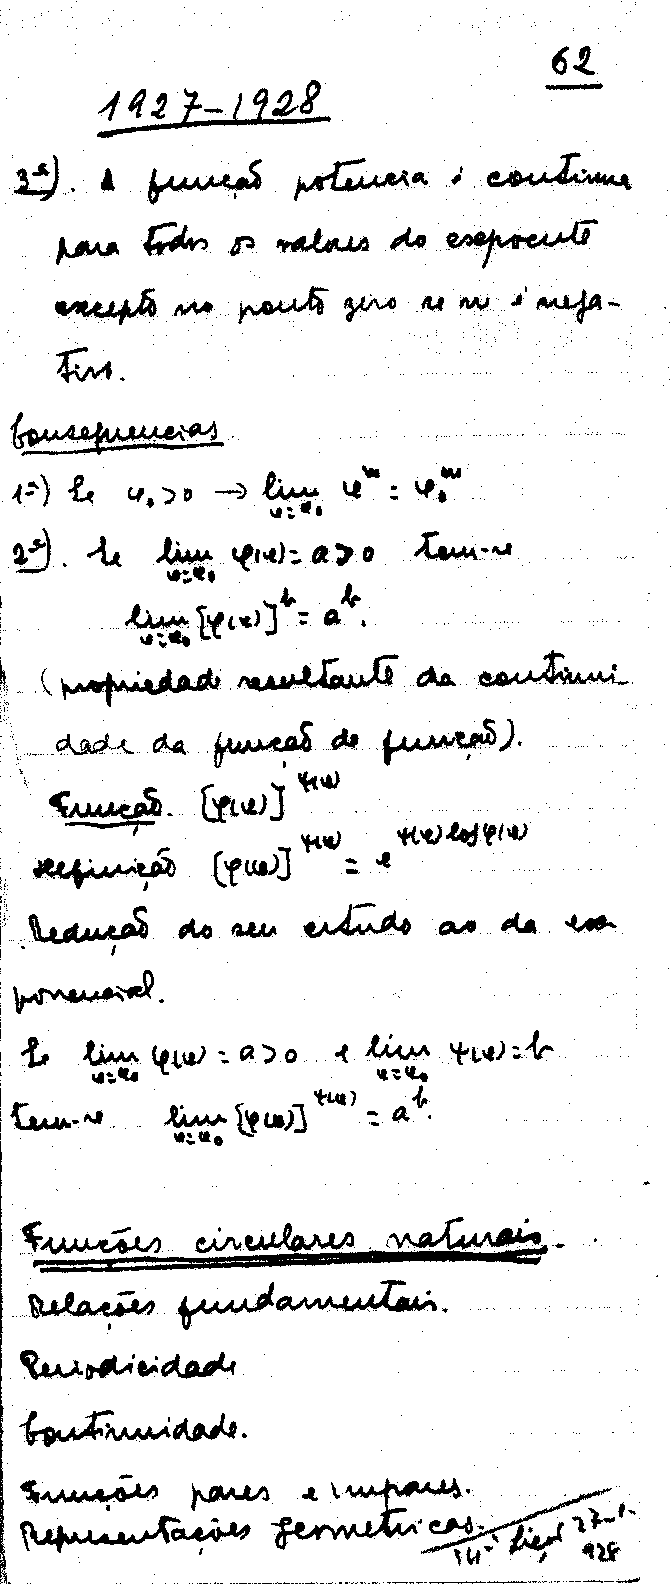 62
1927-1928
3ª). A função potencia é continua
para todos os valores do expoente
excepto no ponto zero se m é nega-
tivo.
Consequencias
1ª) Se x₀ > 0 → lim x^m = x₀^m
x=x₀
2ª). Se lim φ(x) = a > 0 tem-se
x=x₀
lim [φ(x)]^b = a^b.
x=x₀
(propriedade resultante da continui-
dade da função de função).
Função. [φ(x)]^ψ(x)
Definição [φ(x)]^ψ(x) = e^ψ(x) log φ(x)
Redução do seu estudo ao da ex-
ponencial.
Se lim φ(x) = a > 0 e lim ψ(x) = b
x=x₀ x=x₀
tem-se lim [φ(x)]^ψ(x) = a^b.
x=x₀
Funções circulares naturais.
Relações fundamentais.
Periodicidade
Continuidade.
Funções pares e impares.
Representações geometricas.
14ª Lição 27-1-
928